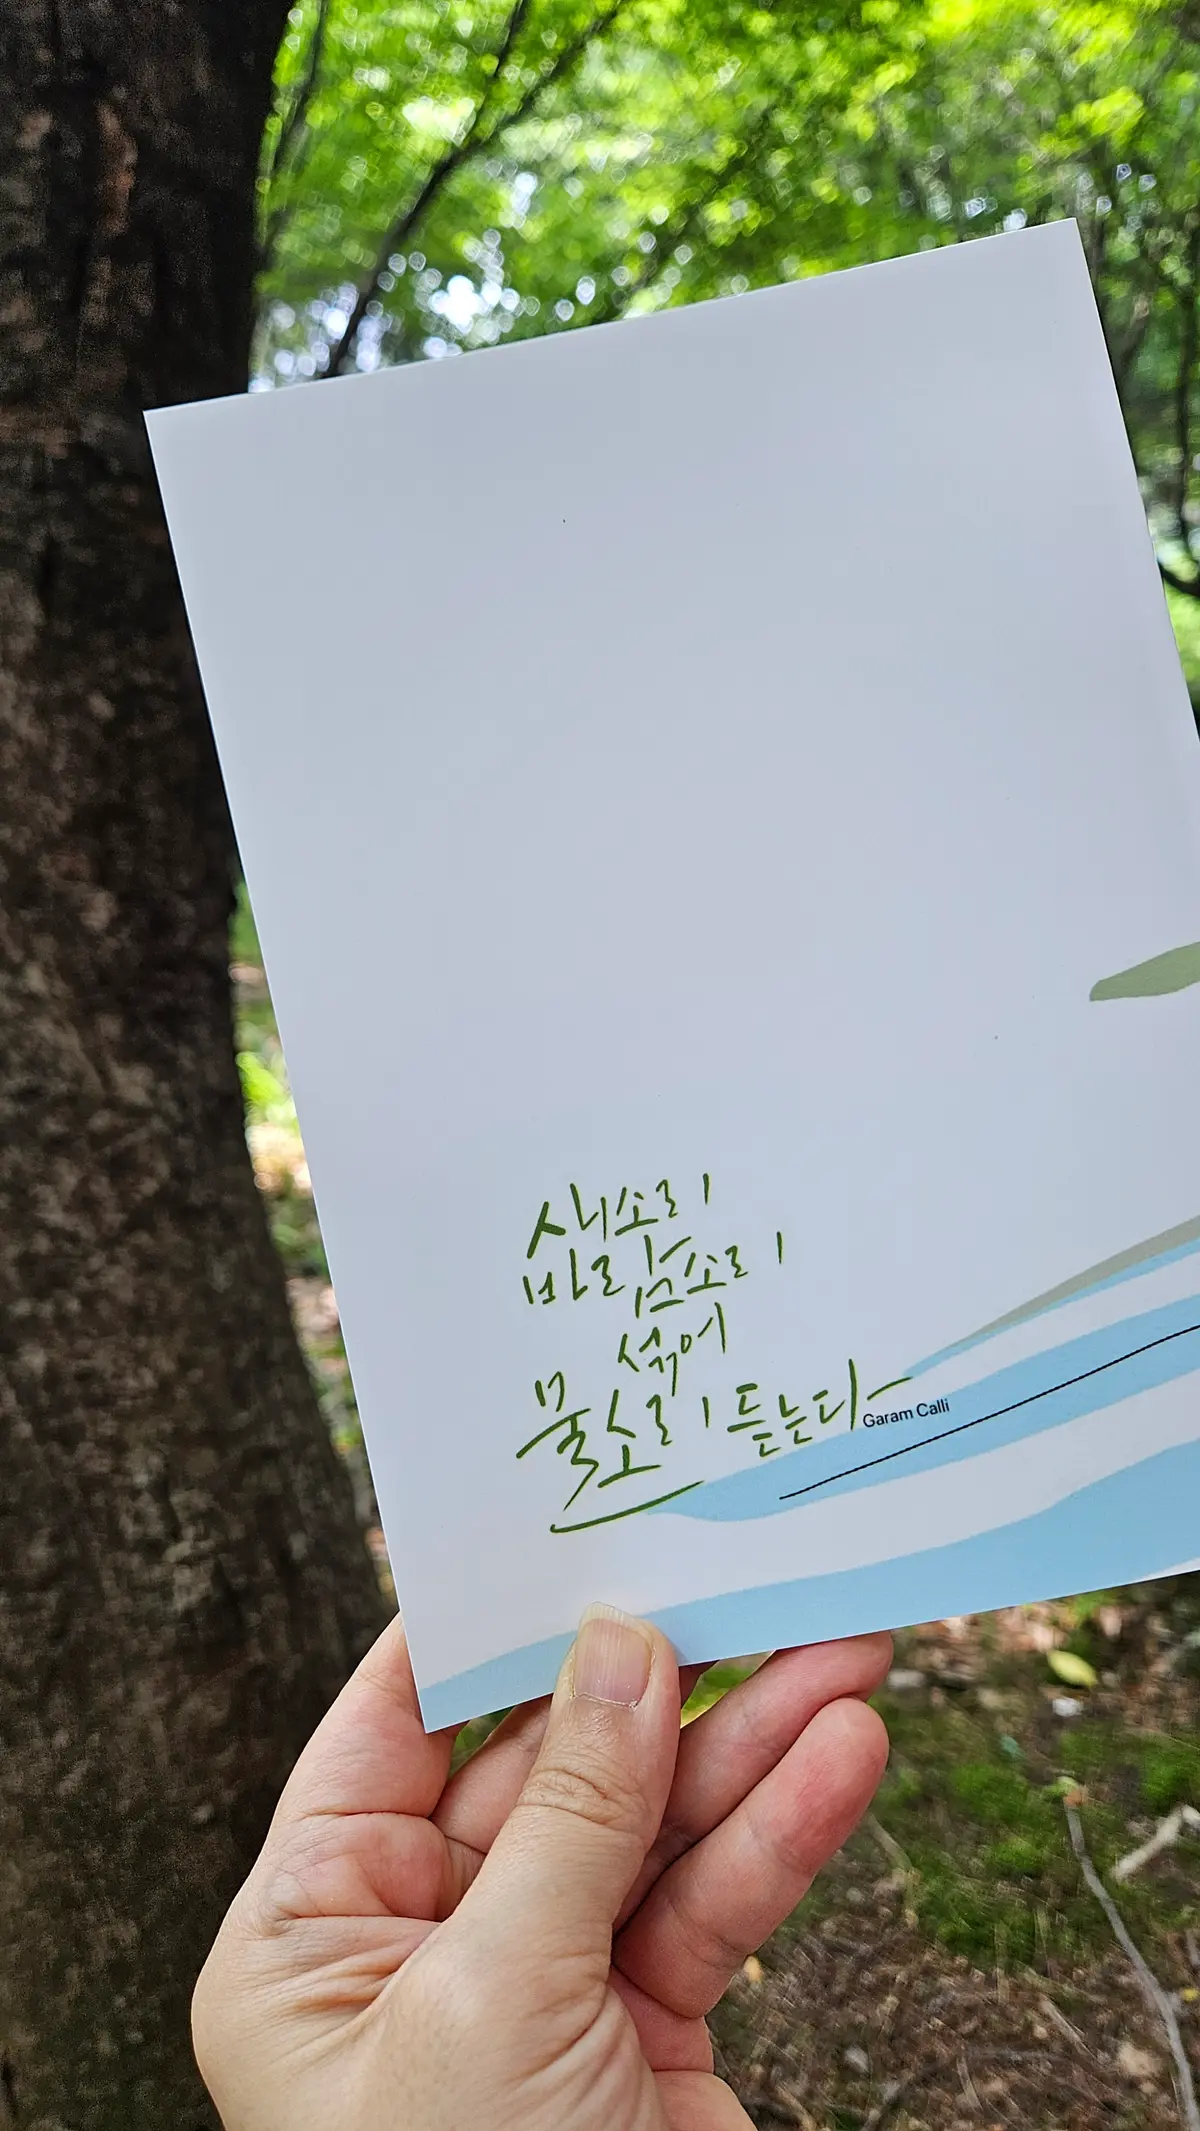 새소리
바람소리
섞어
물소리 듣는다
Garam Calli